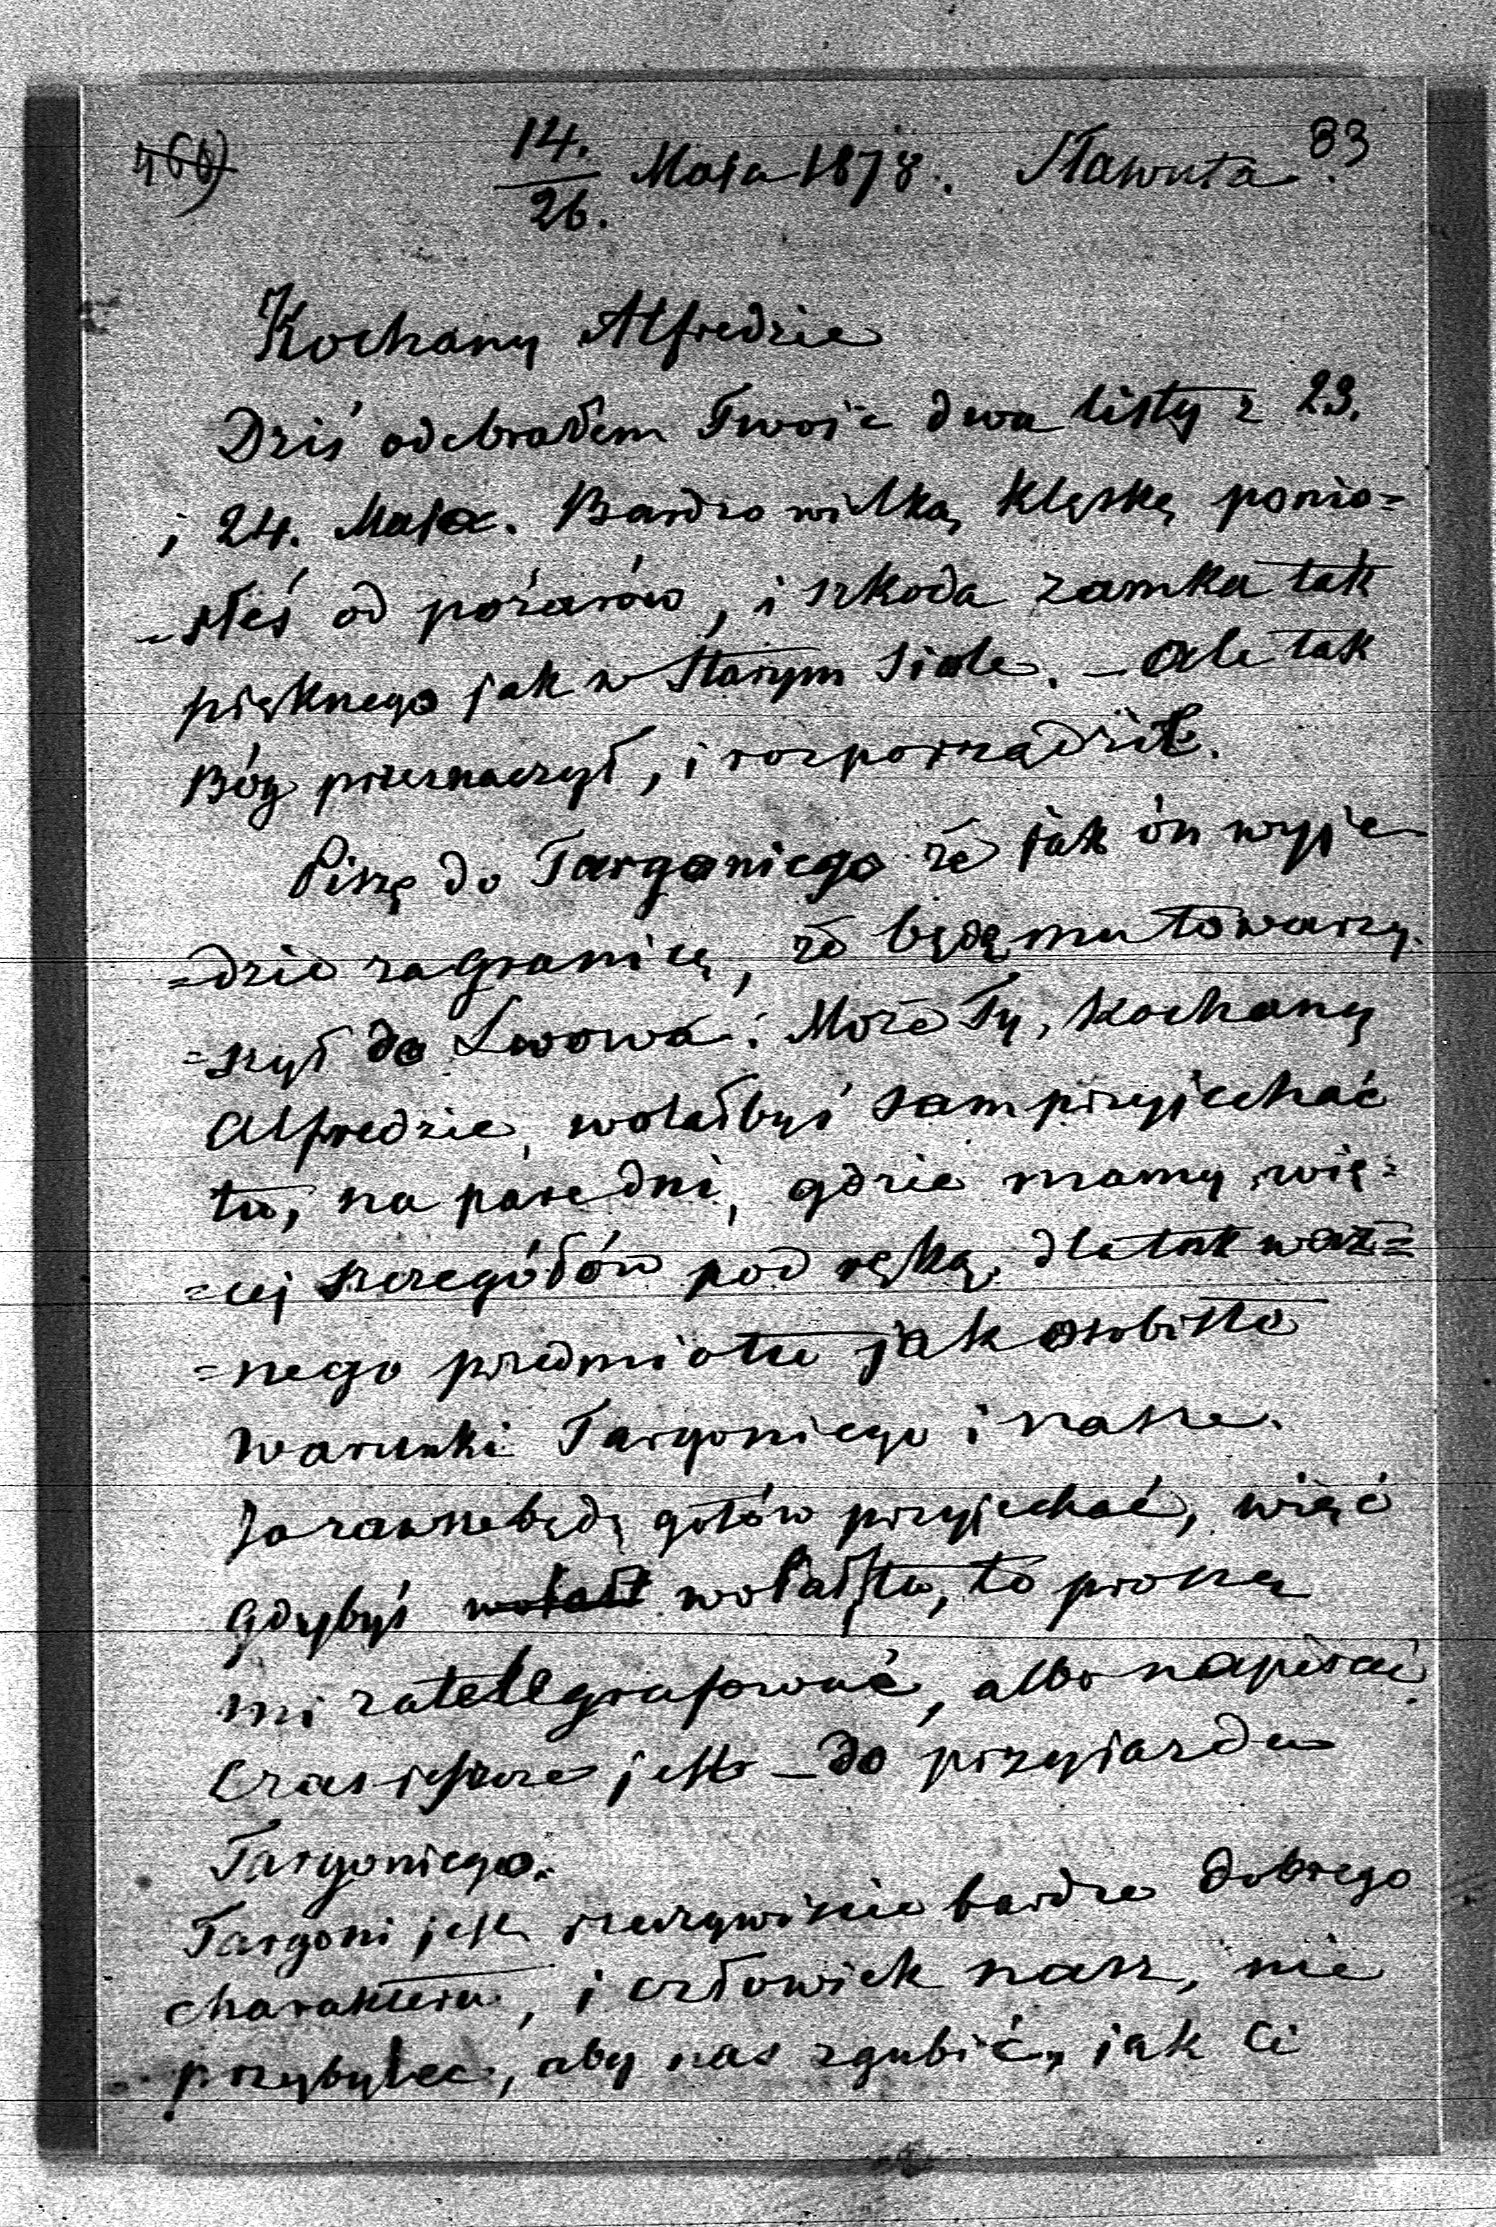 14./26. Maja 1878. Sławuta. 83
Kochany Alfredzie
Dziś odebrałem Twoje dwa listy z 23.
i 24. Maja. Bardzo wilką klęskę ponio=
=słeś od pożarów, i szkoda zamka tak
pięknego jak w Starym Siole. – Ale tak
Bóg przeznaczył, i rozporządził.
Piszę do Targoniego że jak ón wyje
=dzie zagranicę, że będę mu towarzy
=szył do Lwowa. Może Ty, kochany
Alfredzie, wolałbyś sam przyjechać
tu, na parę dni, gdzie mamy wię=
=cej szczegółów pod ręką, dla tak waż=
=nego przedmiotu jak osobiste
warunki Targoniego i nasze.
Ja zawsze będę gotów przyjechać, więc
gdybyś wołał wolał tu, to proszę
mi zatelegrafować, albo napisać.
Czas jeszcze jest – do przyjazdu
Targoniego.
Targoni jest rzeczywiście bardzo dobrego
charakteru, i człowiek nasz, nie
przybylec, aby nas zgubić, jak Ci